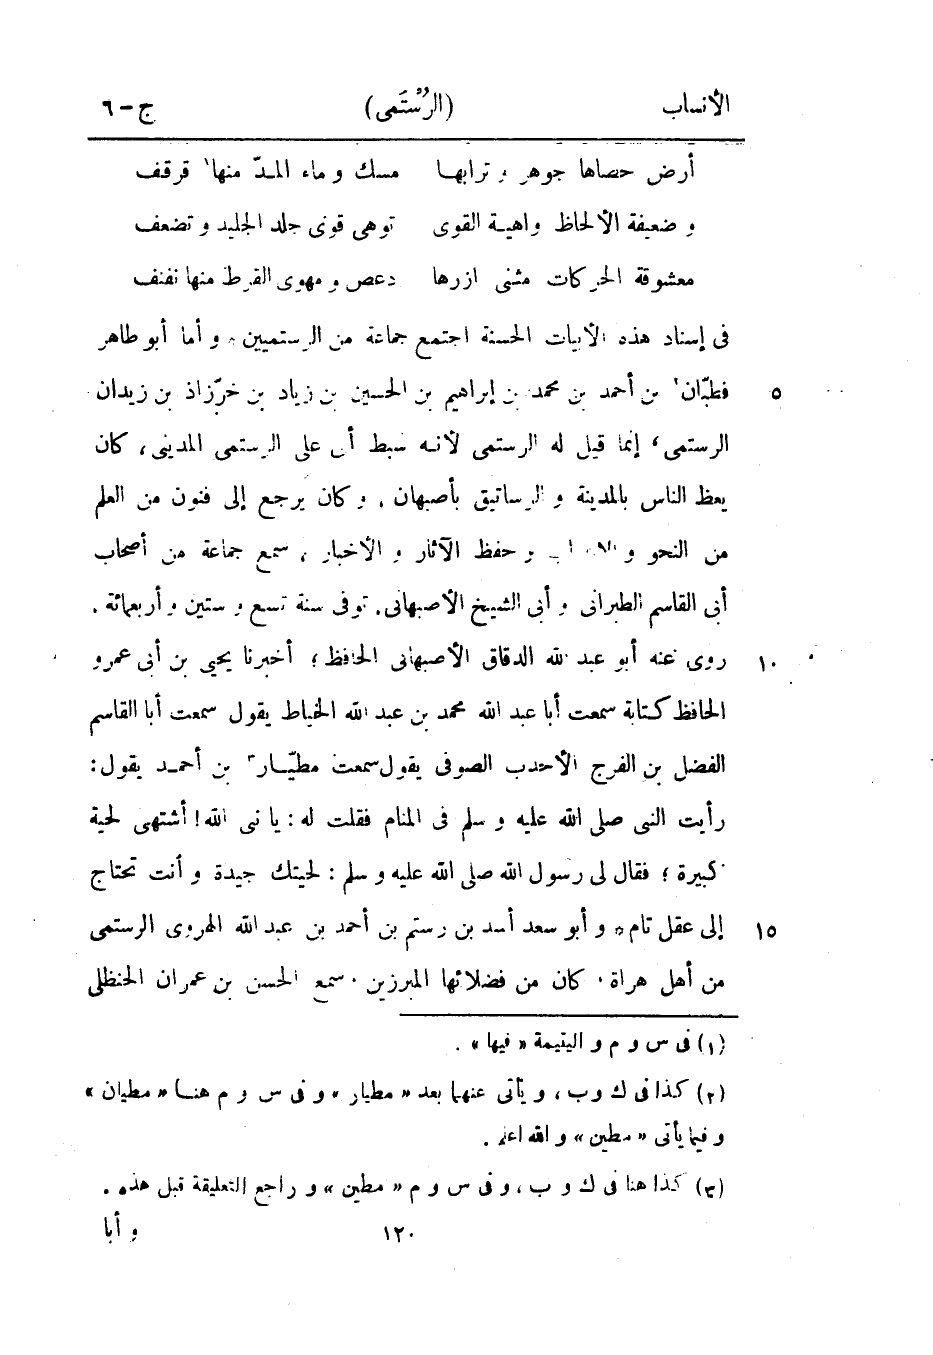 الأنساب (الرُّسْتَمى) ج-٦
أرض حصاها جوهر و ترابها مسك و ماء المدّ منها¹ قرقف
و ضعيفة الألحاظ واهية القوى توهى قوى جلد الجليد و تضعف
معشوقة الحركات مثنى ازرها دعص و مهوى القرط منها نفنف
فى إسناد هذه الأبيات الحسنة اجتمع جماعة من الرستميين * و أما أبو طاهر
فطيّان² بن أحمد بن محمد بن إبراهيم بن الحسين بن زياد بن خرّزاذ بن زيدان ٥
الرستمى، إنما قيل له الرستمى لأنه سبط أبى على الرستمى المدينى، كان
يعظ الناس بالمدينة و الرساتيق بأصبهان، وكان يرجع إلى فنون من العلم
من النحو و و حفظ الآثار و الأخبار، سمع جماعة من أصحاب
أبى القاسم الطبرانى و أبى الشيخ الأصبهانى، توفى سنة تسع و ستين و أربعمائة.
روى عنه أبو عبد الله الدقاق الأصبهانى الحافظ؛ أخبرنا يحيى بن أبى عمرو ١٠
الحافظ كتابة سمعت أبا عبد الله محمد بن عبد الله الخياط يقول سمعت أبا القاسم
الفضل بن الفرج الأحدب الصوفى يقول سمعت مطيّار³ بن أحمد يقول:
رأيت النبى صلى الله عليه و سلم فى المنام فقلت له: يا نبى الله! أشتهى لحية
كبيرة؛ فقال لى رسول الله صلى الله عليه و سلم: لحيتك جيدة و أنت تحتاج
إلى عقل تام * و أبو سعد أسد بن رستم بن أحمد بن عبد الله الهروى الرستمى ١٥
من أهل هراة، كان من فضلائها المبرزين، سمع الحسن بن عمران الحنظلى
(١) فى س و م و اليتيمة « فيها ».
(٢) كذا فى ك و ب، و يأتى عنهما بعد « مطيار » و فى س و م هنا « مطيان »
و فيما يأتى « مطين » و الله اعلم.
(٣) كذا هنا فى ك و ب، و فى س و م « مطين » و راجع التعليقة قبل هذه.
١٢٠ و أبا